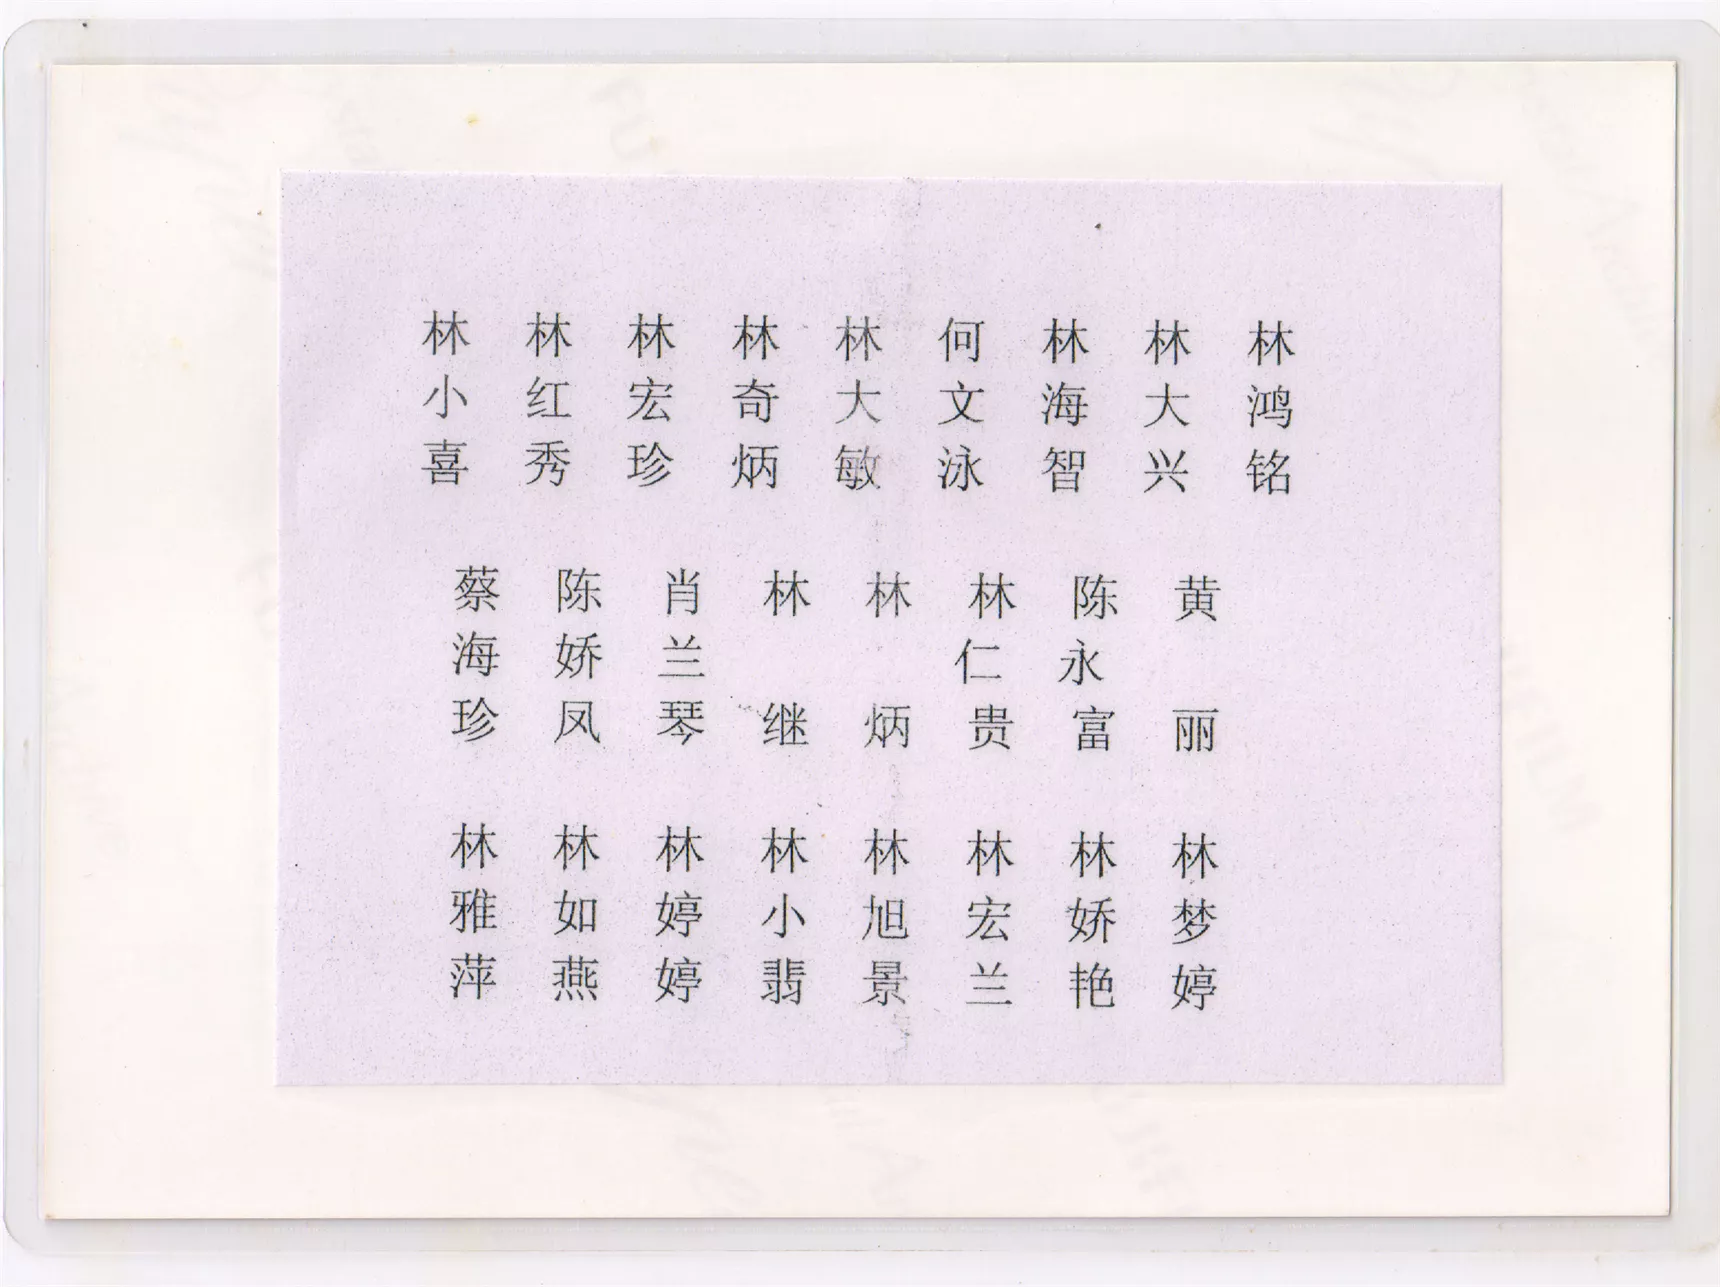 林小喜
林红秀
林宏珍
林奇炳
林大敏
何文泳
林海智
林大兴
林鸿铭
蔡海珍
陈娇凤
肖兰琴
林继
林炳
林仁贵
陈永富
黄丽
林雅萍
林如燕
林婷婷
林小翡
林旭景
林宏兰
林娇艳
林梦婷